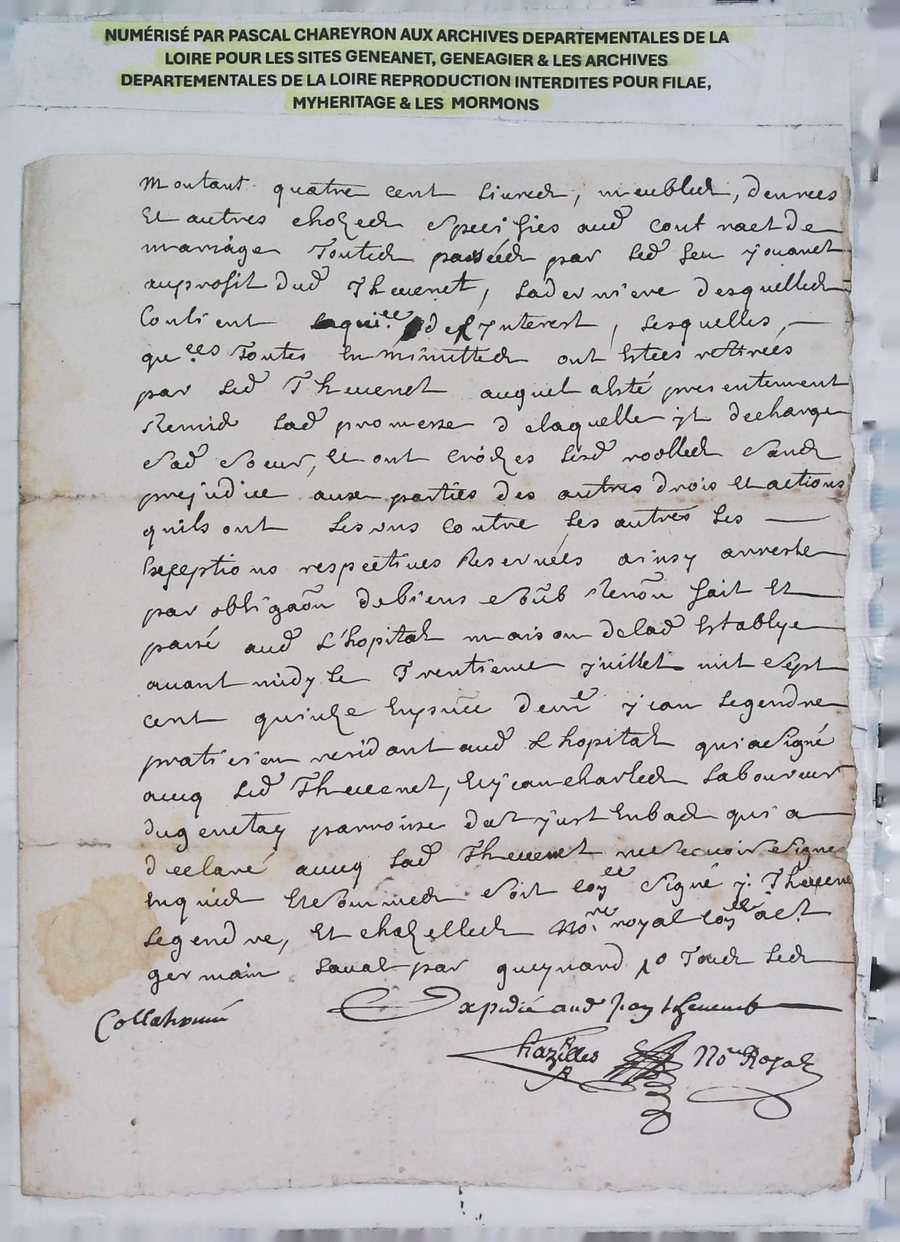 NUMÉRISÉ PAR PASCAL CHAREYRON AUX ARCHIVES DEPARTEMENTALES DE LA
LOIRE POUR LES SITES GENEANET, GENEAGIER & LES ARCHIVES
DEPARTEMENTALES DE LA LOIRE REPRODUCTION INTERDITES POUR FILAE,
MYHERITAGE & LES MORMONS
montant quatre cent livres, meubles, denrees
Et autres chozes speciffies aud contract de
mariage Toutes passées par led feu jouanet
au profit dud Thevenet, la derniere desquelles
Contient laquiee dinterest, lesquelles
quees Toutes En minuttes ont Estees retirées
par led Thevenet auquel a Esté presentement
Remis lad promesse de laquelle jl decharge
sad soeur, Et ont lesd roolles sans
prejudice aux parties des autres drois Et actions
quils ont les uns contre les autres les
Exceptions respectives Reservées ainsy arresté
par obligaon de biens soub Renon fait Et
passé aud L'hopital maison de lad Establye
avant midy le Trentieme juillet mil sept
cent quinze En pnce de me jean legendre
praticien residant aud L hopital qui a signé
avecq led Thevenet, Et jean charles laboureur
du genetay parroisse de st just En bas qui a
declaré avecq lad Thevenet ne scavoir signer
Enquis Et sommes soit coee signé j. Thevene
legendre, Et chazelles Nore royal coee a st
germain laval par gueynard 10 sous les
Collationné Expedié aud jean thevenet
Chazelles Nore Royal